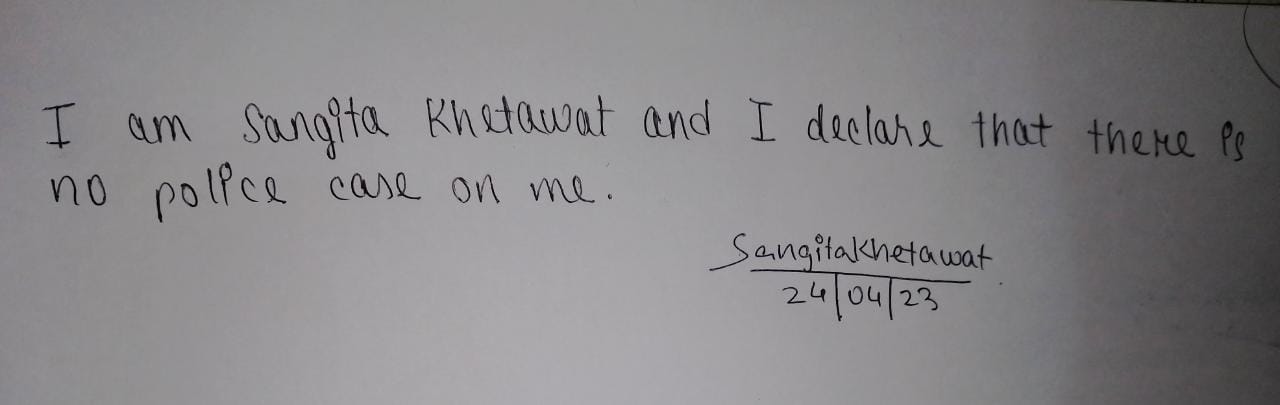 I am Sangita Khetawat and I declare that there is
no police case on me.
Sangita Khetawat
24/04/23